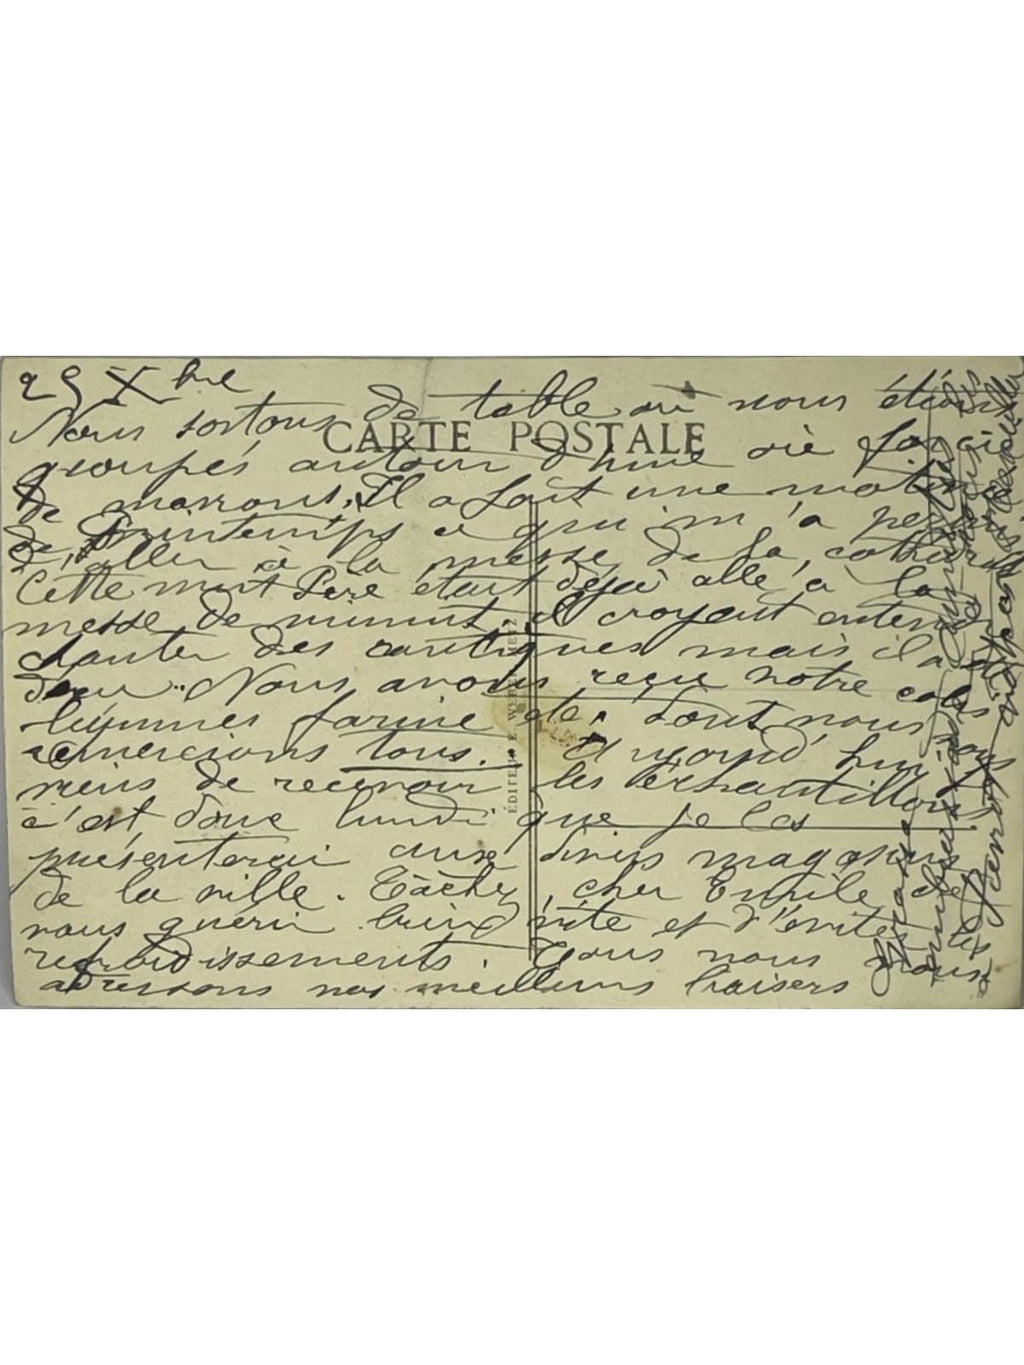 25 Xbre
Nous sortons de table où nous étions
CARTE POSTALE
groupés autour d'une oie farcie
de marrons. Il a fait une matinée
de Printemps ce qui m'a permis
d'aller à la messe de la cathédrale
Cette nuit Père était déjà allé à la
messe de minuit, il croyait entendre
chanter des cantiques mais il a été
déçu. Nous avons reçu notre colis
légumes farine etc. dont nous vous
remercions tous. Aujourd'hui je
viens de recevoir les échantillons
c'est donc lundi que je les
présenterai aux divers magasins
de la ville. Tâchez, cher Emile, de
vous guérir bien vite et d'éviter les
refroidissements. Tous nous vous
adressons nos meilleurs baisers
ÉDITEUR METZ